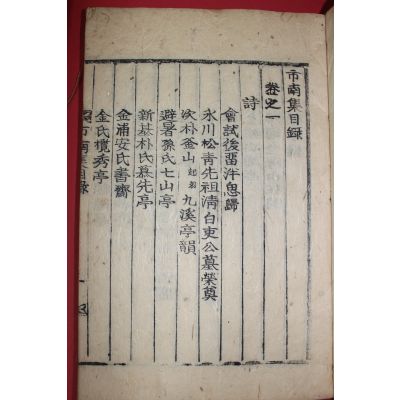 市南集目錄
卷之一
詩
會試後留泮思歸
永川松青先祖清白吏公墓榮奠
次朴釜山起羽九溪亭韻
避暑孫氏七山亭
新基朴氏慕先亭
金浦安氏書齋
金氏攬秀亭
市南集目錄
一